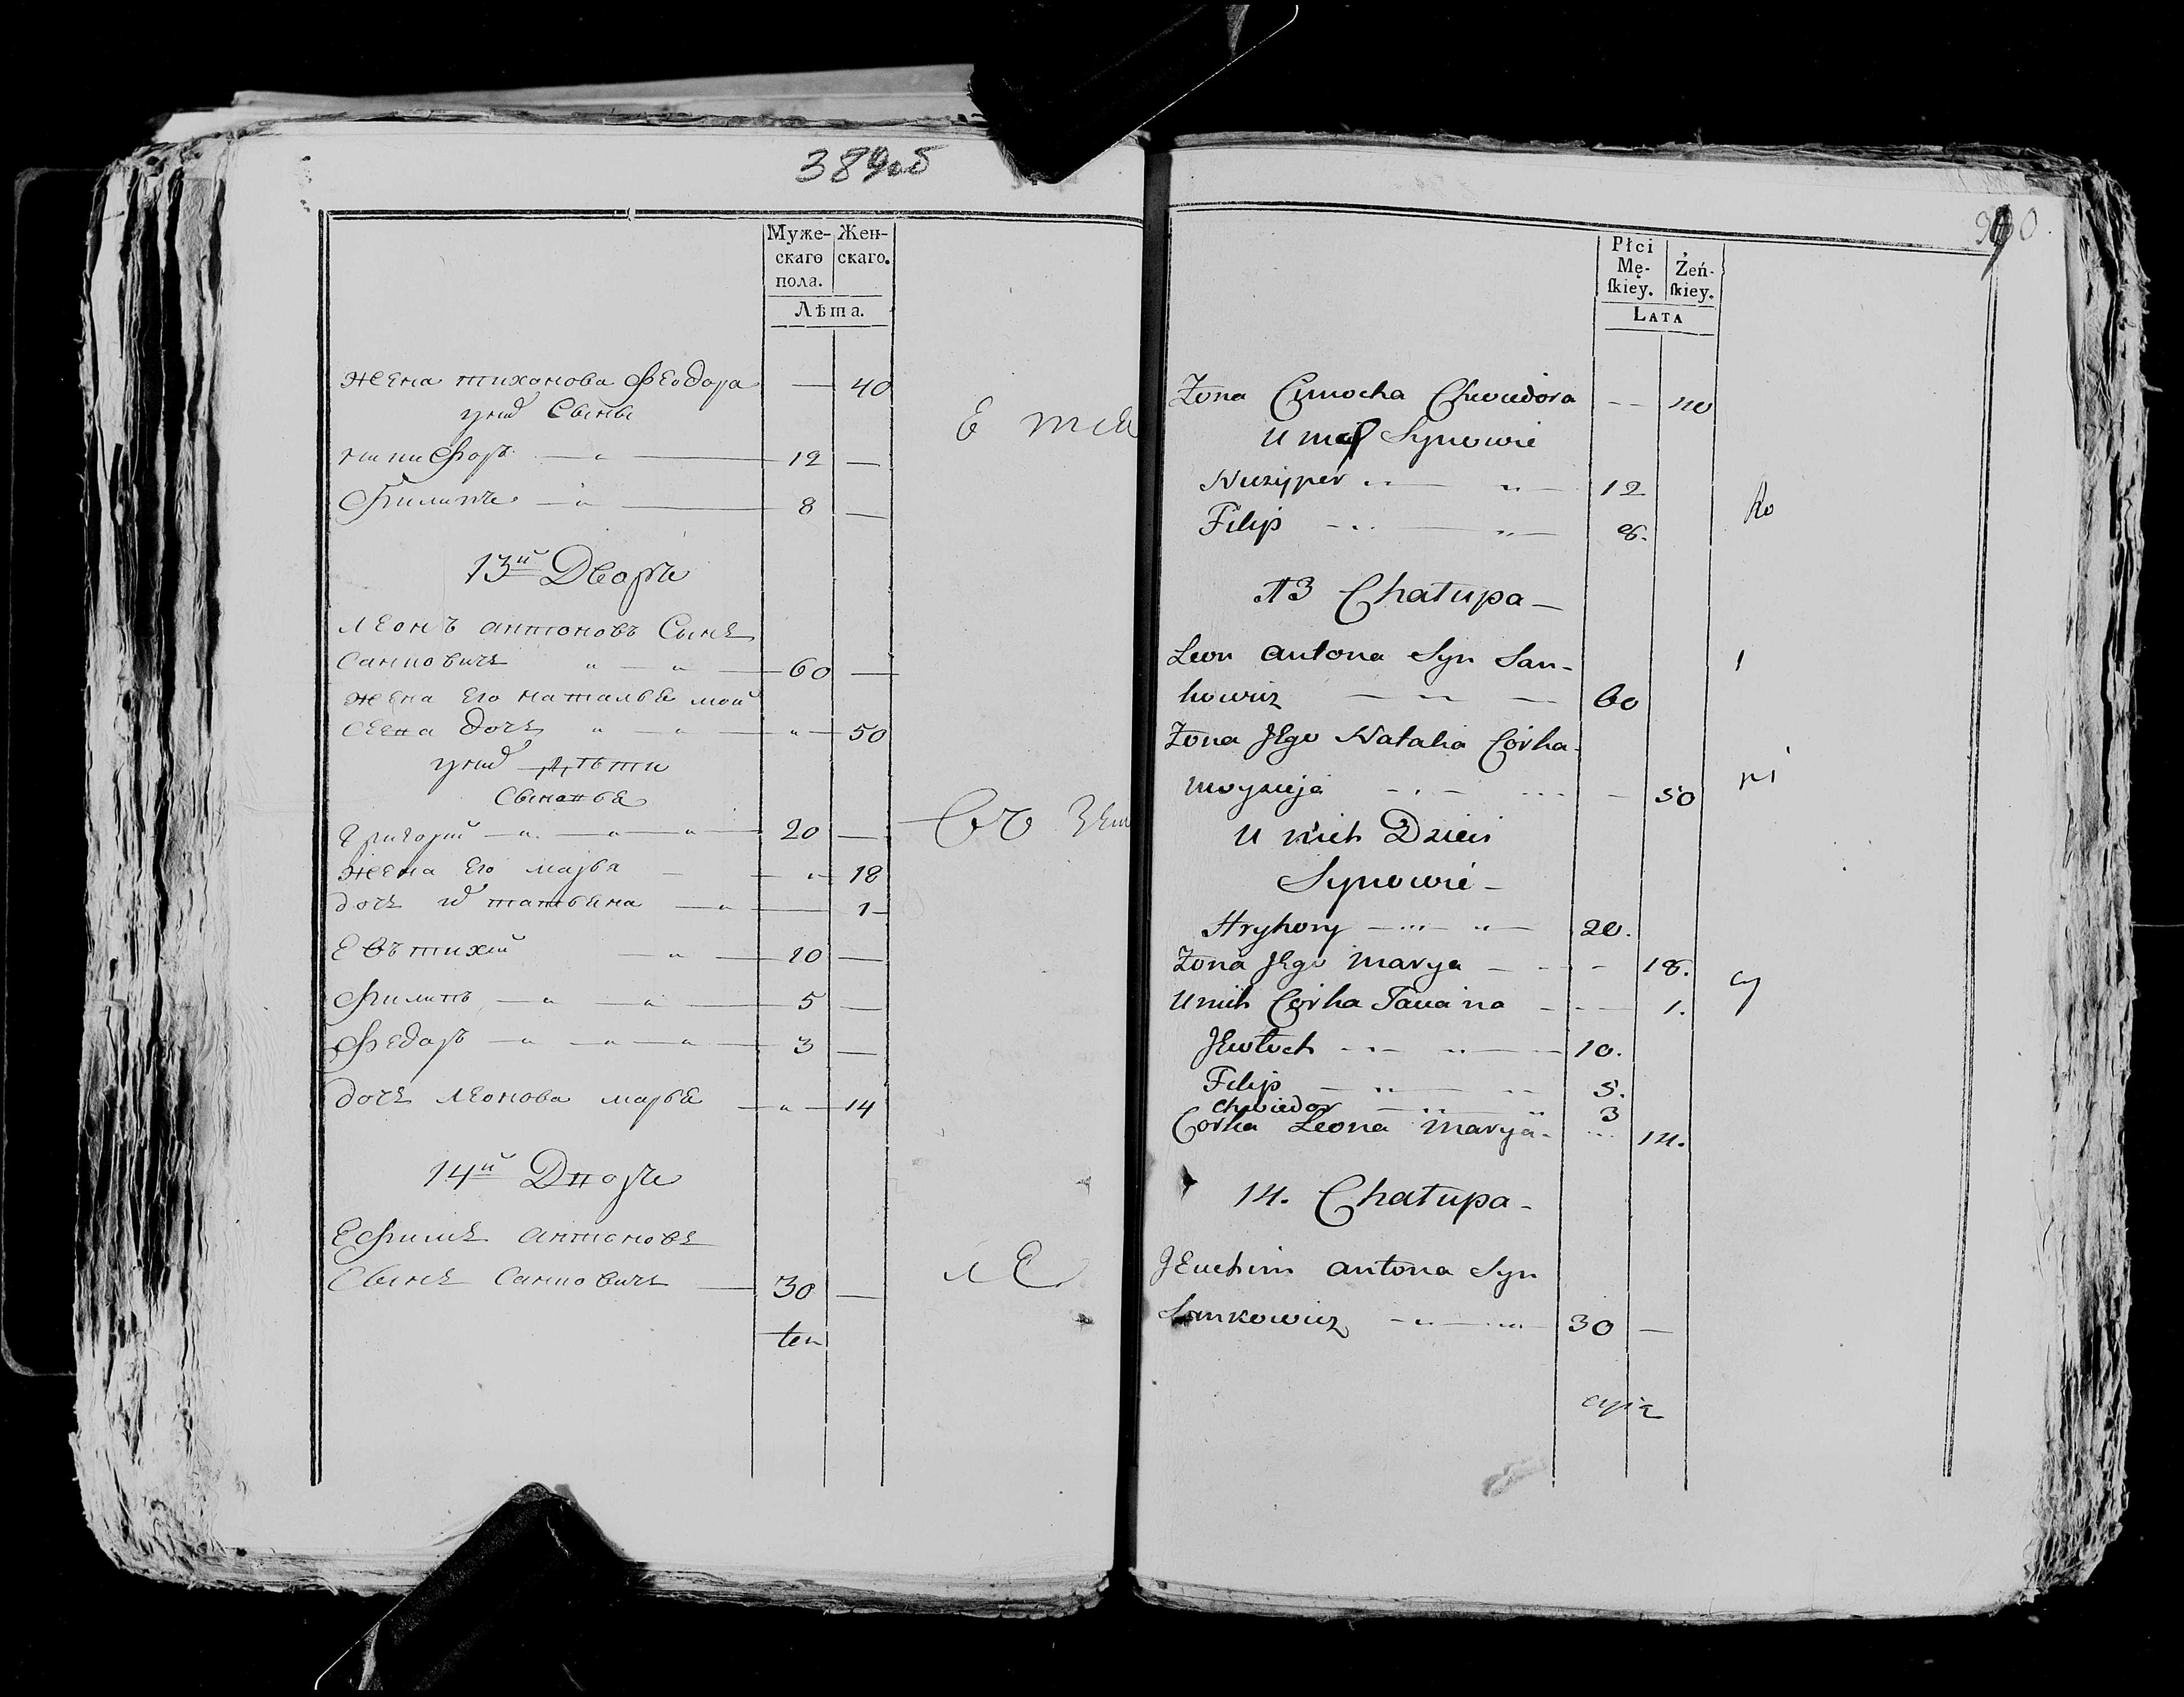 389об
Муже-
скаго
пола.
Жен-
скаго.
Лѣта.
жена тихонова феодора — 40
у них Сыны
никифоръ — 12 —
Филипъ — 8 —
13й Дворъ
леонъ антоновъ Сынъ
Санковичъ — 60 —
жена его наталья мои
сеева дочь — 50
у них дѣти
Сыновья
григорий — 20 —
жена его марья — 18
дочь их татьяна — 1
Евтихий — 10 —
Филипъ — 5 —
Федоръ — 3 —
дочь леонова марья — 14
14й Дворъ
Ефимъ антоновъ
Сынъ Санковичъ — 30 —
390
Płci
Mę-
ſkiey.
Żeń-
ſkiey.
LATA
Żona Cimocha Chwiedora — 40
U ma Synowie
Nuzyper — 12
Filip — 8.
13 Chałupa —
Leon antona Syn San-
kowicz — 60
Żona JEgo Natalia Córka
moyzieja — 50
U nich Dzieci
Synowie —
Hryhory — 20.
Żona JEgo Marya — 18.
U nich Córka Taciana — 1.
JEwtuch — 10.
Filip — 5.
Chwiedor — 3
Corka Leona Marya — 14.
14. Chałupa —
JEuchim antona Syn
Sankowicz — 30 —